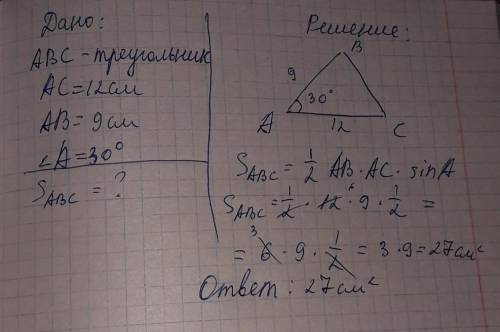 Дано:
ABC - треугольник
AC = 12 см
AB = 9 см
∠A = 30°
S_ABC = ?
Решение:
B
9
30°
A
12
C
S_ABC = 1/2 AB · AC · sinA
S_ABC = 1/2 · 12 6 · 9 · 1/2 =
= 3 6 · 9 · 1/2 = 3 · 9 = 27 см²
Ответ: 27 см²